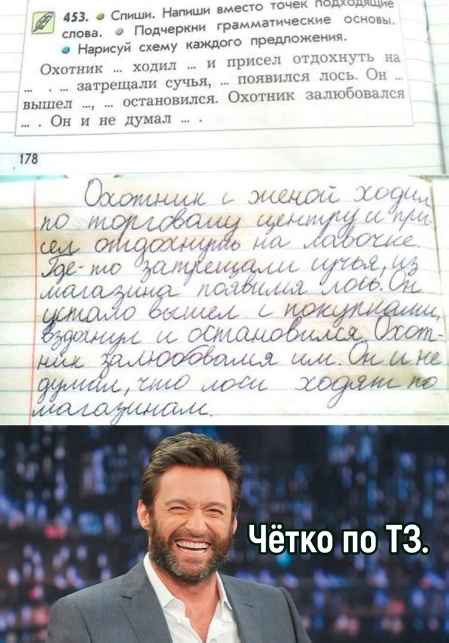 453. Спиши. Напиши вместо точек подходящие
слова. Подчеркни грамматические основы.
Нарисуй схему каждого предложения.
Охотник ... ходил ... и присел отдохнуть на
... . ... затрещали сучья, ... появился лось. Он ...
вышел ..., ... остановился. Охотник залюбовался
... . Он и не думал ... .
178
Охотник с женой ходил
по торговому центру и при-
сел отдохнуть на лавочке.
Где-то затрещали сучья, из
магазина появился лось. Он
устало вышел с покупками,
вздохнул и остановился. Охот-
ник залюбовался им. Он и не
думал, что лоси ходят по
магазинам.
Чётко по ТЗ.